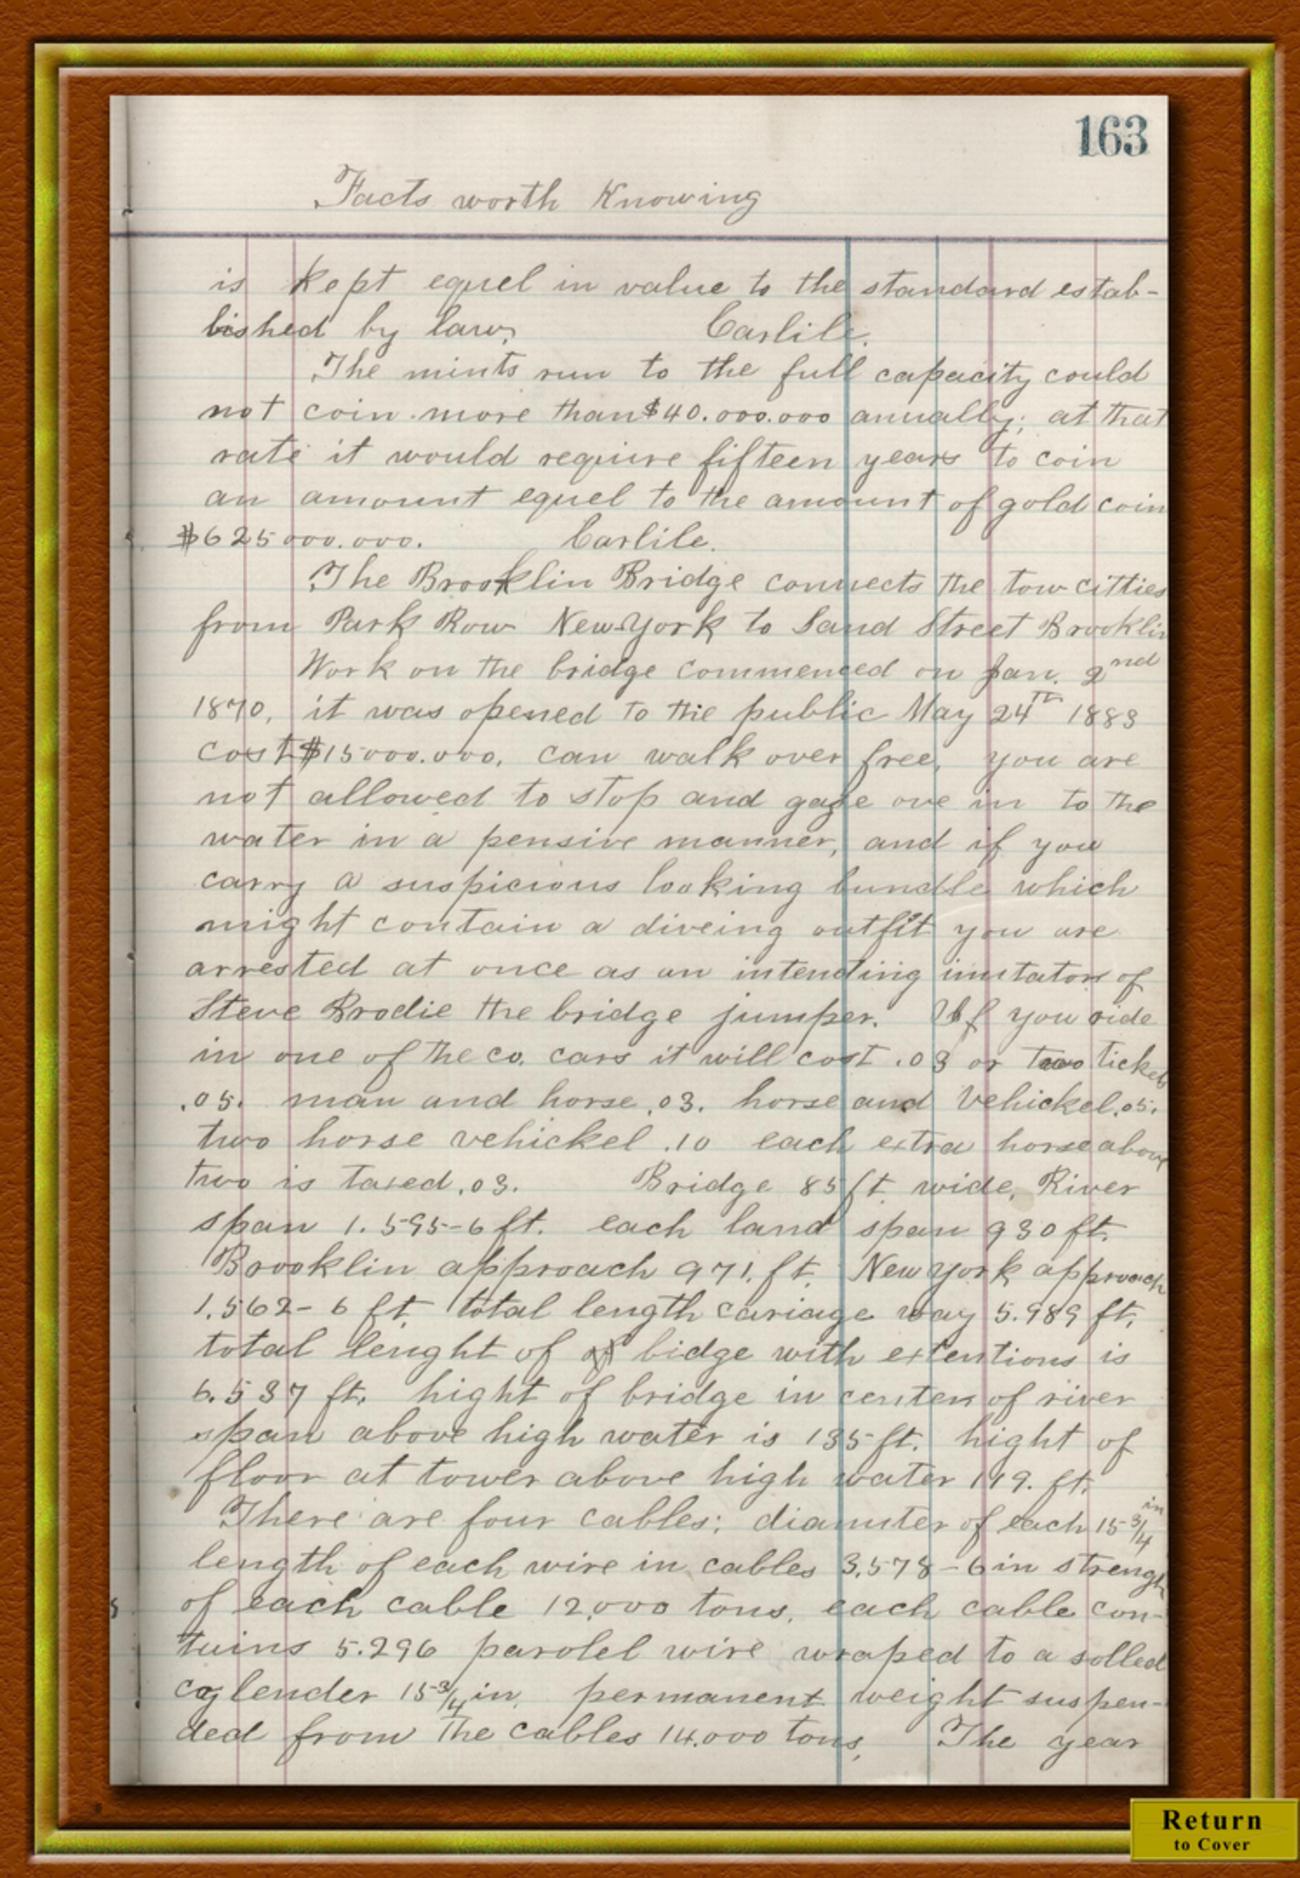 163
Facts worth Knowing
is kept equel in value to the standard estab-
lished by law, Carlile.
The mints run to the full capacity could
not coin more than $40.000.000 anually; at that
rate it would require fifteen years to coin
an amount equel to the amount of gold coin
$625000.000. Carlile.
The Brooklin Bridge connects the tow citties
from Park Row New York to Sand Street Brooklin
Work on the bridge commenced on Jan. 2nd
1870, it was opened to the public May 24th 1883
cost $15000.000, can walk over free, you are
not allowed to stop and gaze ove in to the
water in a pensive manner, and if you
carry a suspicious looking bundle which
might contain a diveing outfit you are
arrested at once as an intending imitator of
Steve Brodie the bridge jumper. If you ride
in one of the co. cars it will cost .03 or two tickets
.05. man and horse .03. horse and vehickel .05.
two horse vehickel .10 each extra horse above
two is taxed .03. Bridge 85 ft wide, River
span 1.595-6 ft. each land span 930 ft.
Brooklin approach 971. ft. New York approach
1.562-6 ft. total length cariage way 5.989 ft,
total lenght of bidge with extentions is
6.537 ft. hight of bridge in center of river
span above high water is 135 ft. hight of
floor at tower above high water 119. ft.
There are four cables; diamiter of each 15 3/4 in
length of each wire in cables 3.578-6 in strength
of each cable 12,000 tons, each cable con-
tains 5.296 parolel wire wraped to a solled
cylender 15 3/4 in, permanent weight suspen-
ded from the cables 14.000 tons, The year
Return
to Cover